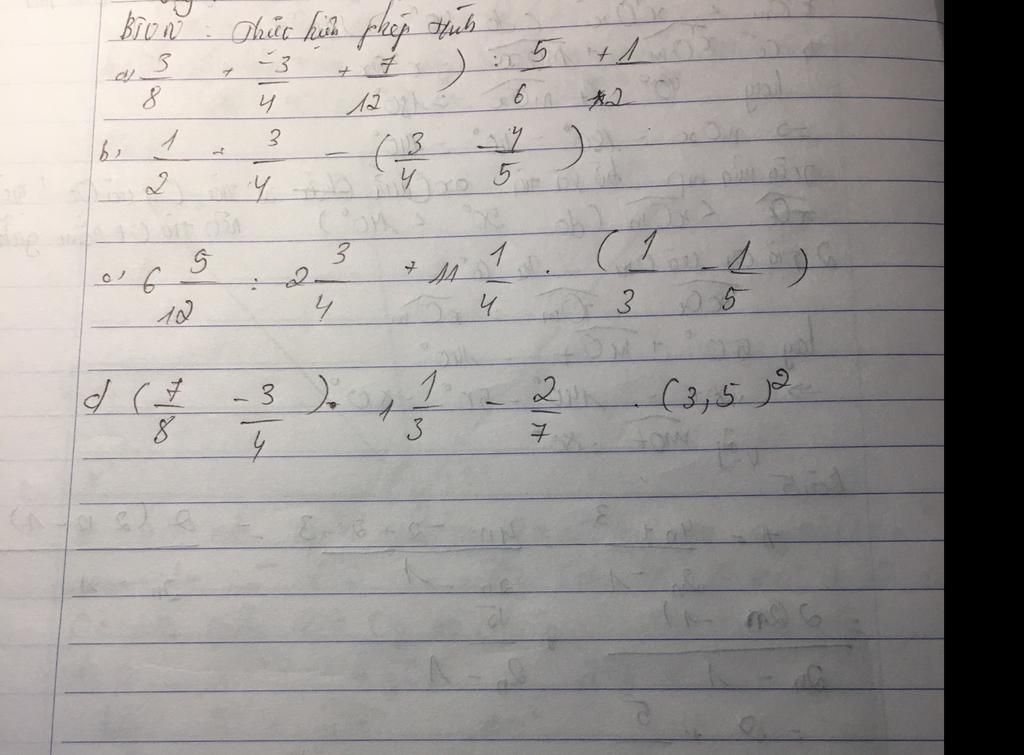 BTVN : Thực hiện phép tính
a) 3/8 + -3/4 + 7/12 ) : 5/6 + 1/2
b, 1/2 + 3/4 - (3/4 - 4/5 )
c, 6 5/12 : 2 3/4 + 11 1/4 . ( 1/3 - 1/5 )
d ( 7/8 - 3/4 ) . 1 1/3 - 2/7 . (3,5)²